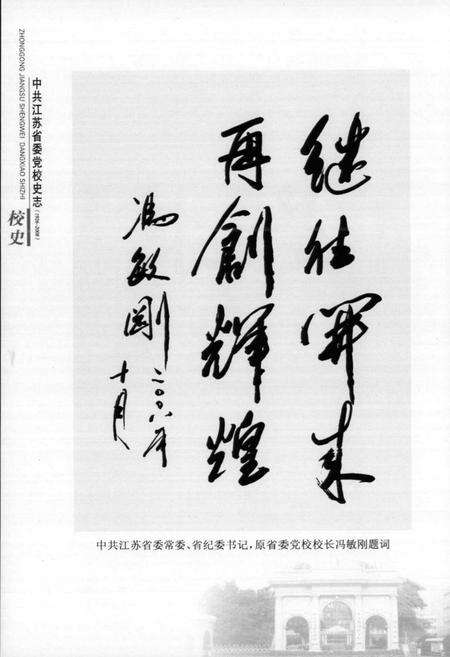 中共江苏省委党校史志(1953-2008)
ZHONGGONG JIANGSU SHENGWEI DANGXIAO SHIZHI
校史
继往开来
再創輝煌
冯敏刚
二〇〇八年
十月
中共江苏省委常委、省纪委书记，原省委党校校长冯敏刚题词